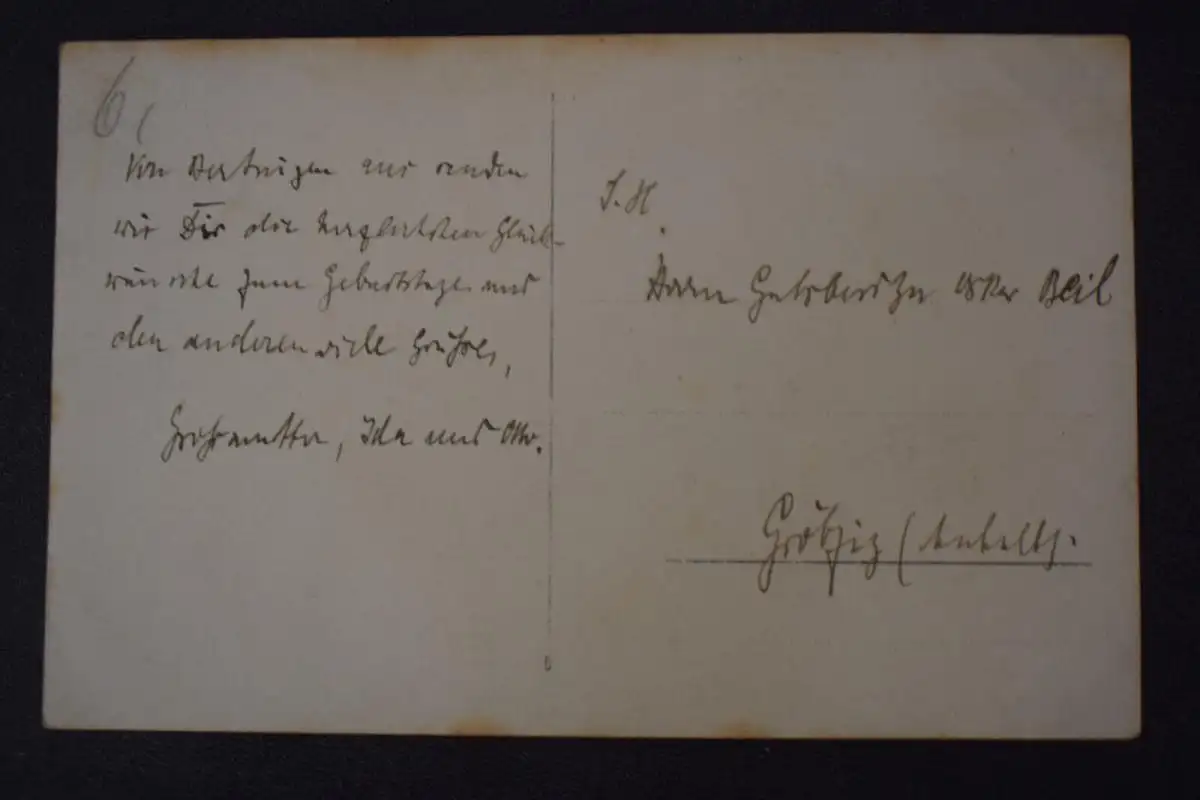 6
Von aus senden
wir Dir die herzlichsten Glück-
wünsche zum Geburtstage und
den anderen viele Grüße,
Großmutter, Ida und Otto.
S. H.
Herrn Gutsbesitzer Beil
Gröbzig (Anhalt).